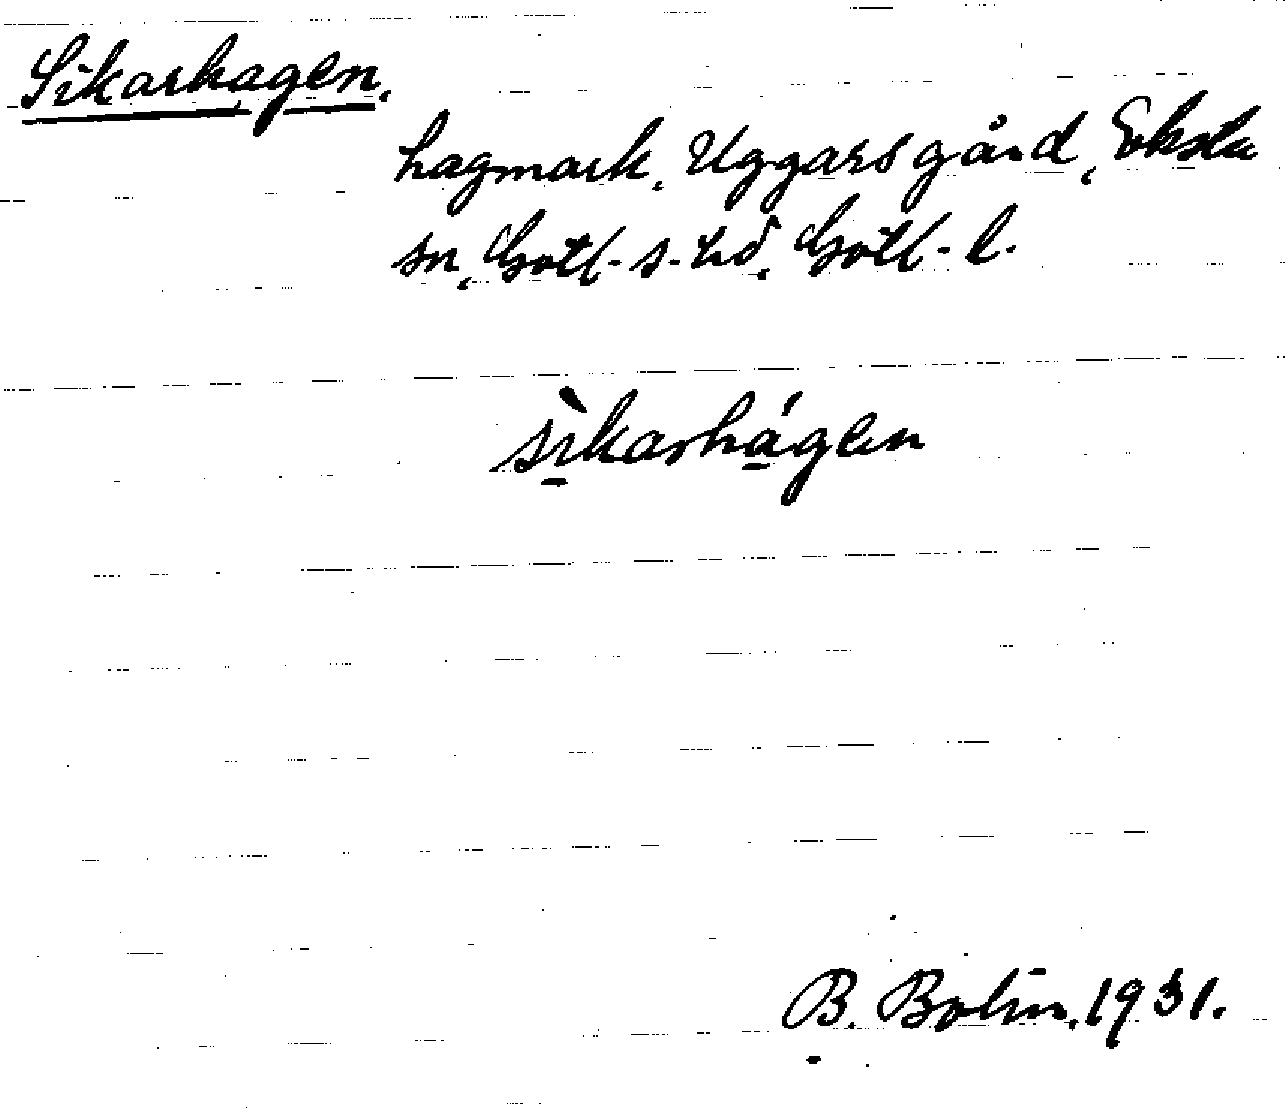 Sikarhagen,
hagmark, Uggarsgård, Eksta
sn, Gotl. s. hd, Gotl. l.
sìkarhágen
B. Bolin, 1931.